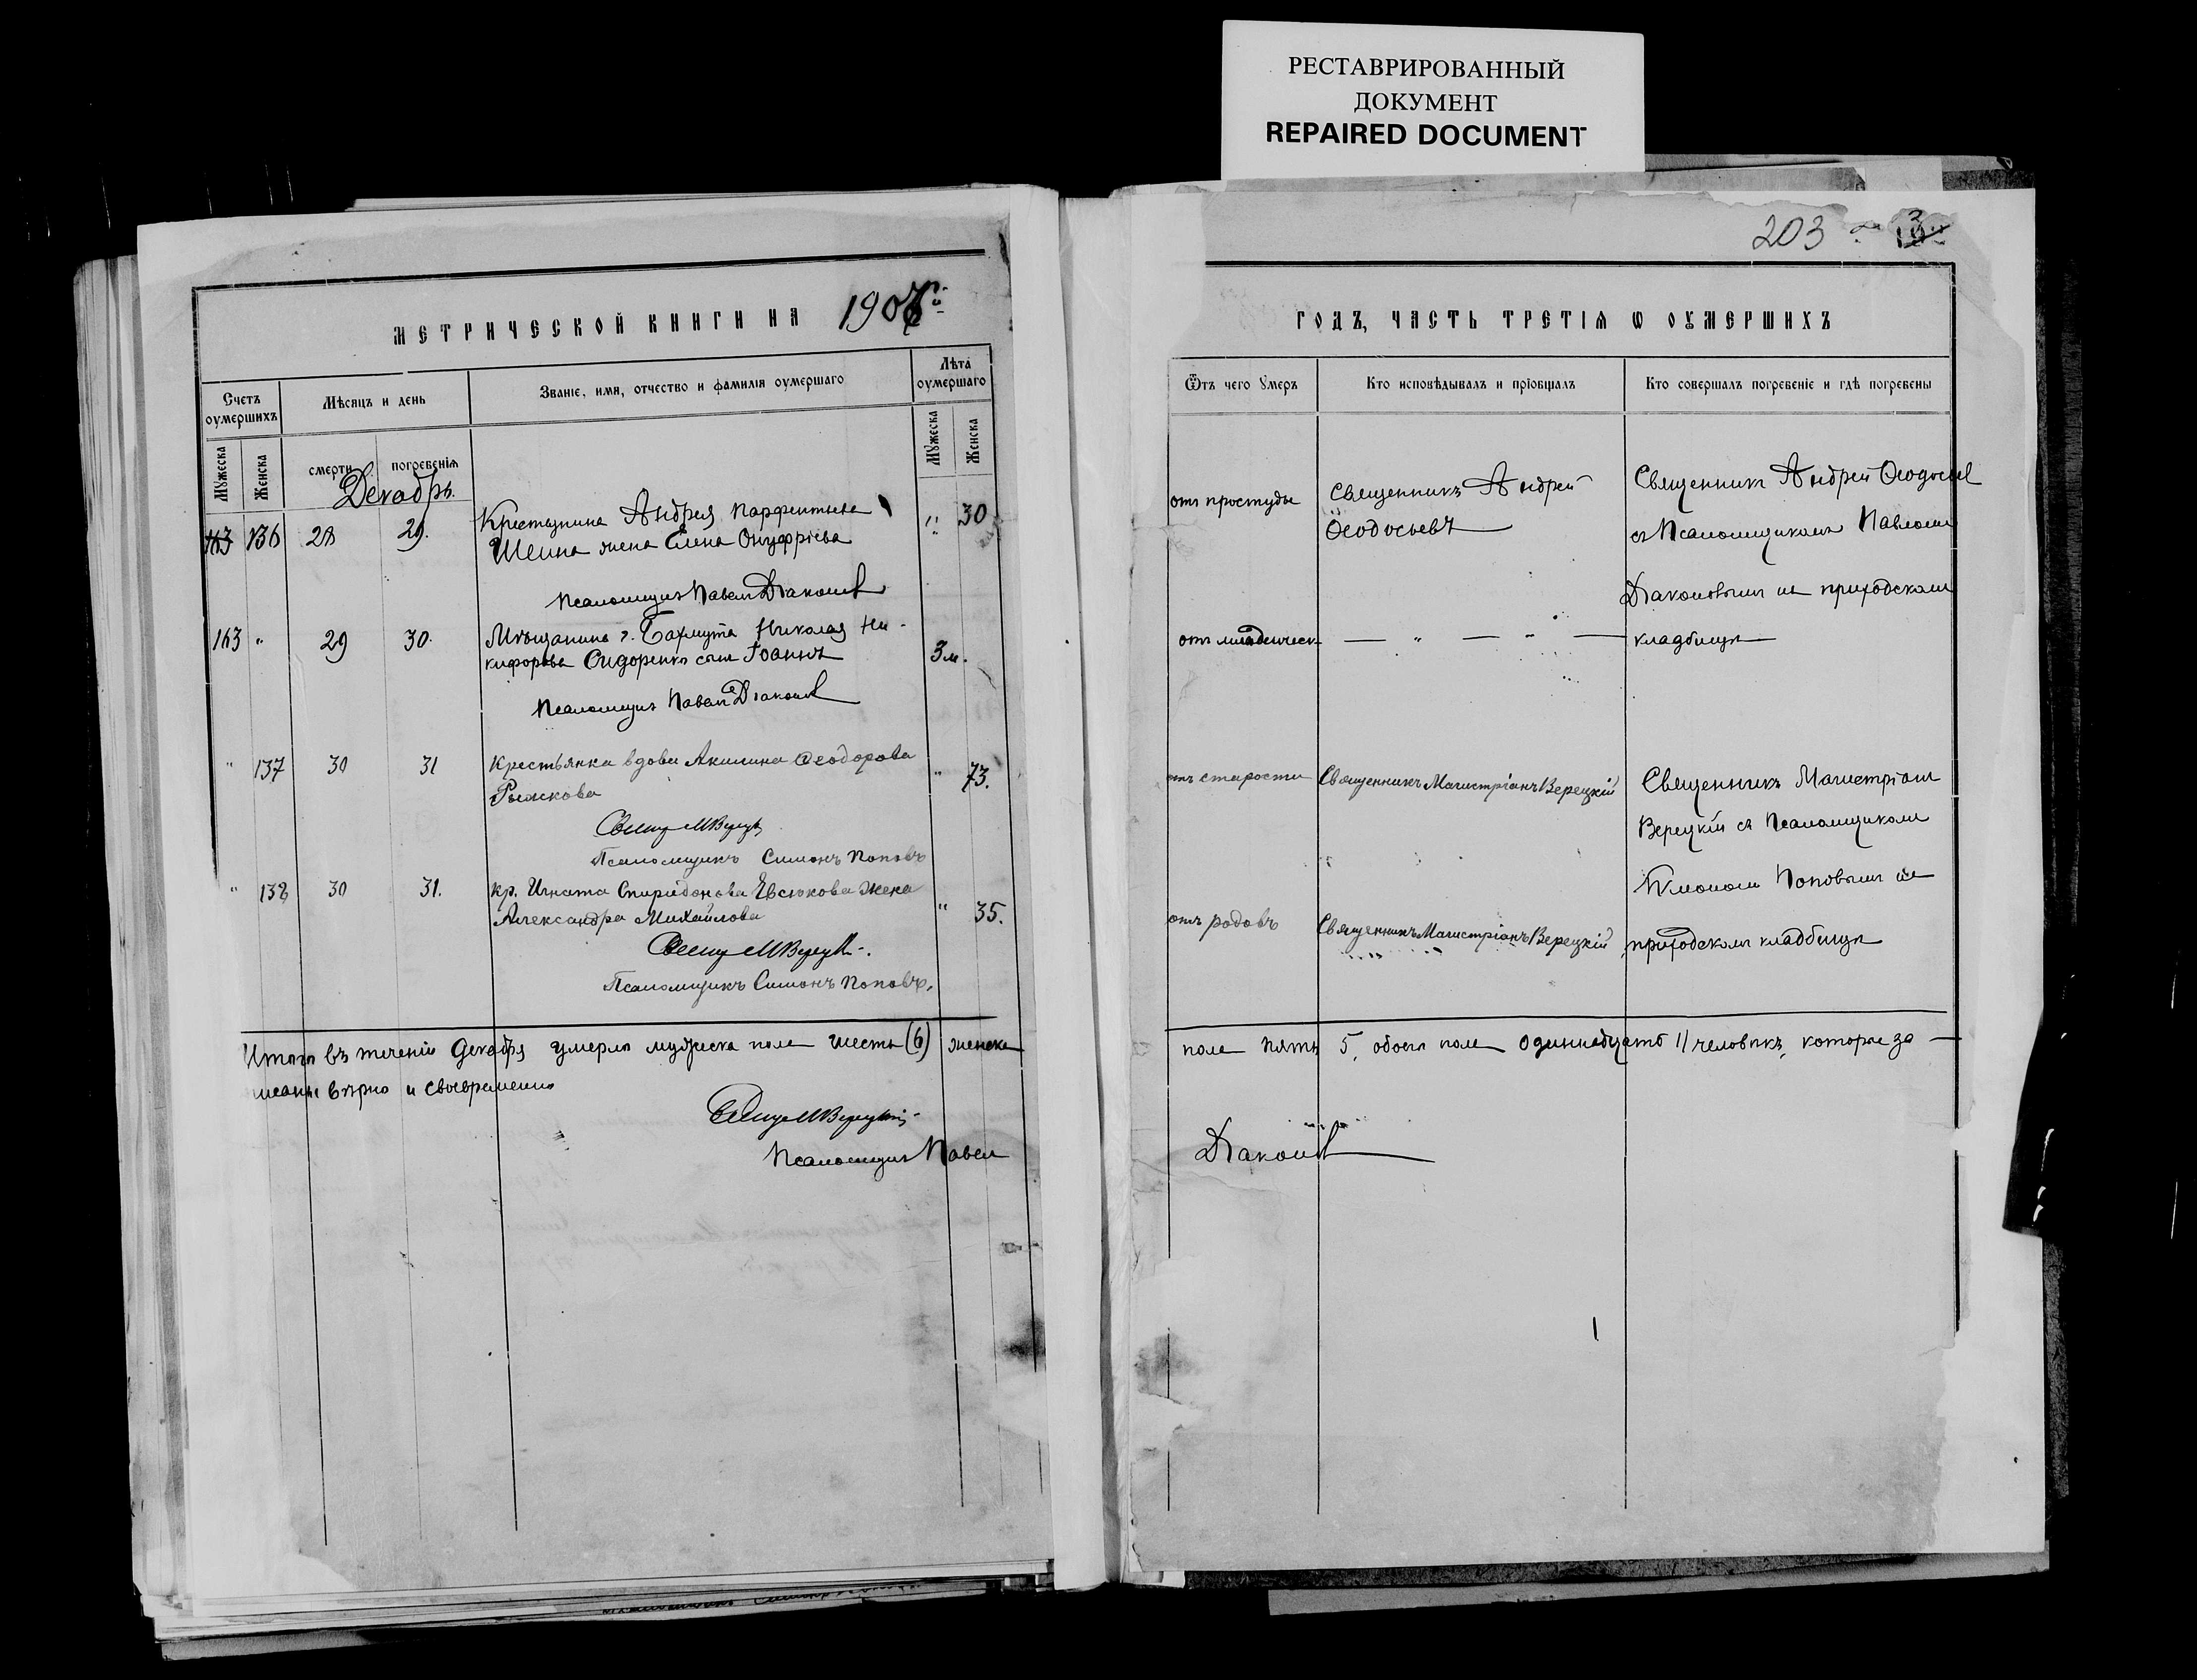 РЕСТАВРИРОВАННЫЙ
ДОКУМЕНТ
REPAIRED DOCUMENT
МЕТРИЧЕСКОЙ КНИГИ НА 190
Счетъ оумершихъ
Мѣсяцъ и день
Званіе, имя, отчество и фамилія оумершаго
Лѣта оумершаго
Мужеска
Женска
смерти
погребенія
Мужеска
Женска
Декабрь.
163 136 28 29. Крестьянина Андрея Парфентьева " 30
Шеина жена Елена Онуфріева
Псаломщикъ Павелъ Діаконовъ
163 " 29 30. Мѣщанина г. Бахмута Николая Ни-
кифорова Сидоренко сынъ Іоаннъ 3 м.
Псаломщикъ Павелъ Діаконовъ
" 137 30 31 Крестьянка вдова Акилина Ѳеодорова " 73.
Рыжкова
Свящ М Верецкій
Псаломщикъ Симонъ Поповъ
" 138 30 31. кр. Игната Спиридонова Евсюкова жена
Александра Михайлова " 35.
Свящ М Верецкій.
Псаломщикъ Симонъ Поповъ.
Итого въ теченіи Декабря умерло мужеска пола шесть (6) женска
писаны вѣрно и своевременно
Свящ М Верецкій
Псаломщикъ Павелъ
203
ГОДЪ, ЧАСТЬ ТРЕТІЯ Ѡ ОУМЕРШИХЪ
Ѿтъ чего умеръ
Кто исповѣдывалъ и пріобщалъ
Кто совершалъ погребеніе и гдѣ погребены
отъ простуды
Священникъ Андрей
Ѳеодосьевъ
Священникъ Андрей Ѳеодосьев
съ Псаломщикомъ Павломъ
Діаконовымъ на приходскомъ
кладбищѣ
отъ младенческ — " — " —
отъ старости
Священникъ Магистріанъ Верецкій
Священникъ Магистріанъ
Верецкій съ Псаломщикомъ
Симономъ Поповымъ на
приходскомъ кладбищѣ
отъ родовъ
Священникъ Магистріанъ Верецкій
пола пять 5, обоего пола одиннадцать 11 человѣкъ, которые за —
Діаконовъ